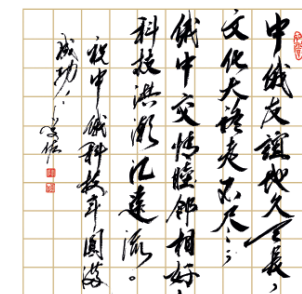 中俄友谊地久天长，
文化大语走不尽；
俄中交情睦邻相好
科技洪潮汇远流。
祝中俄科技年圆满
成功！